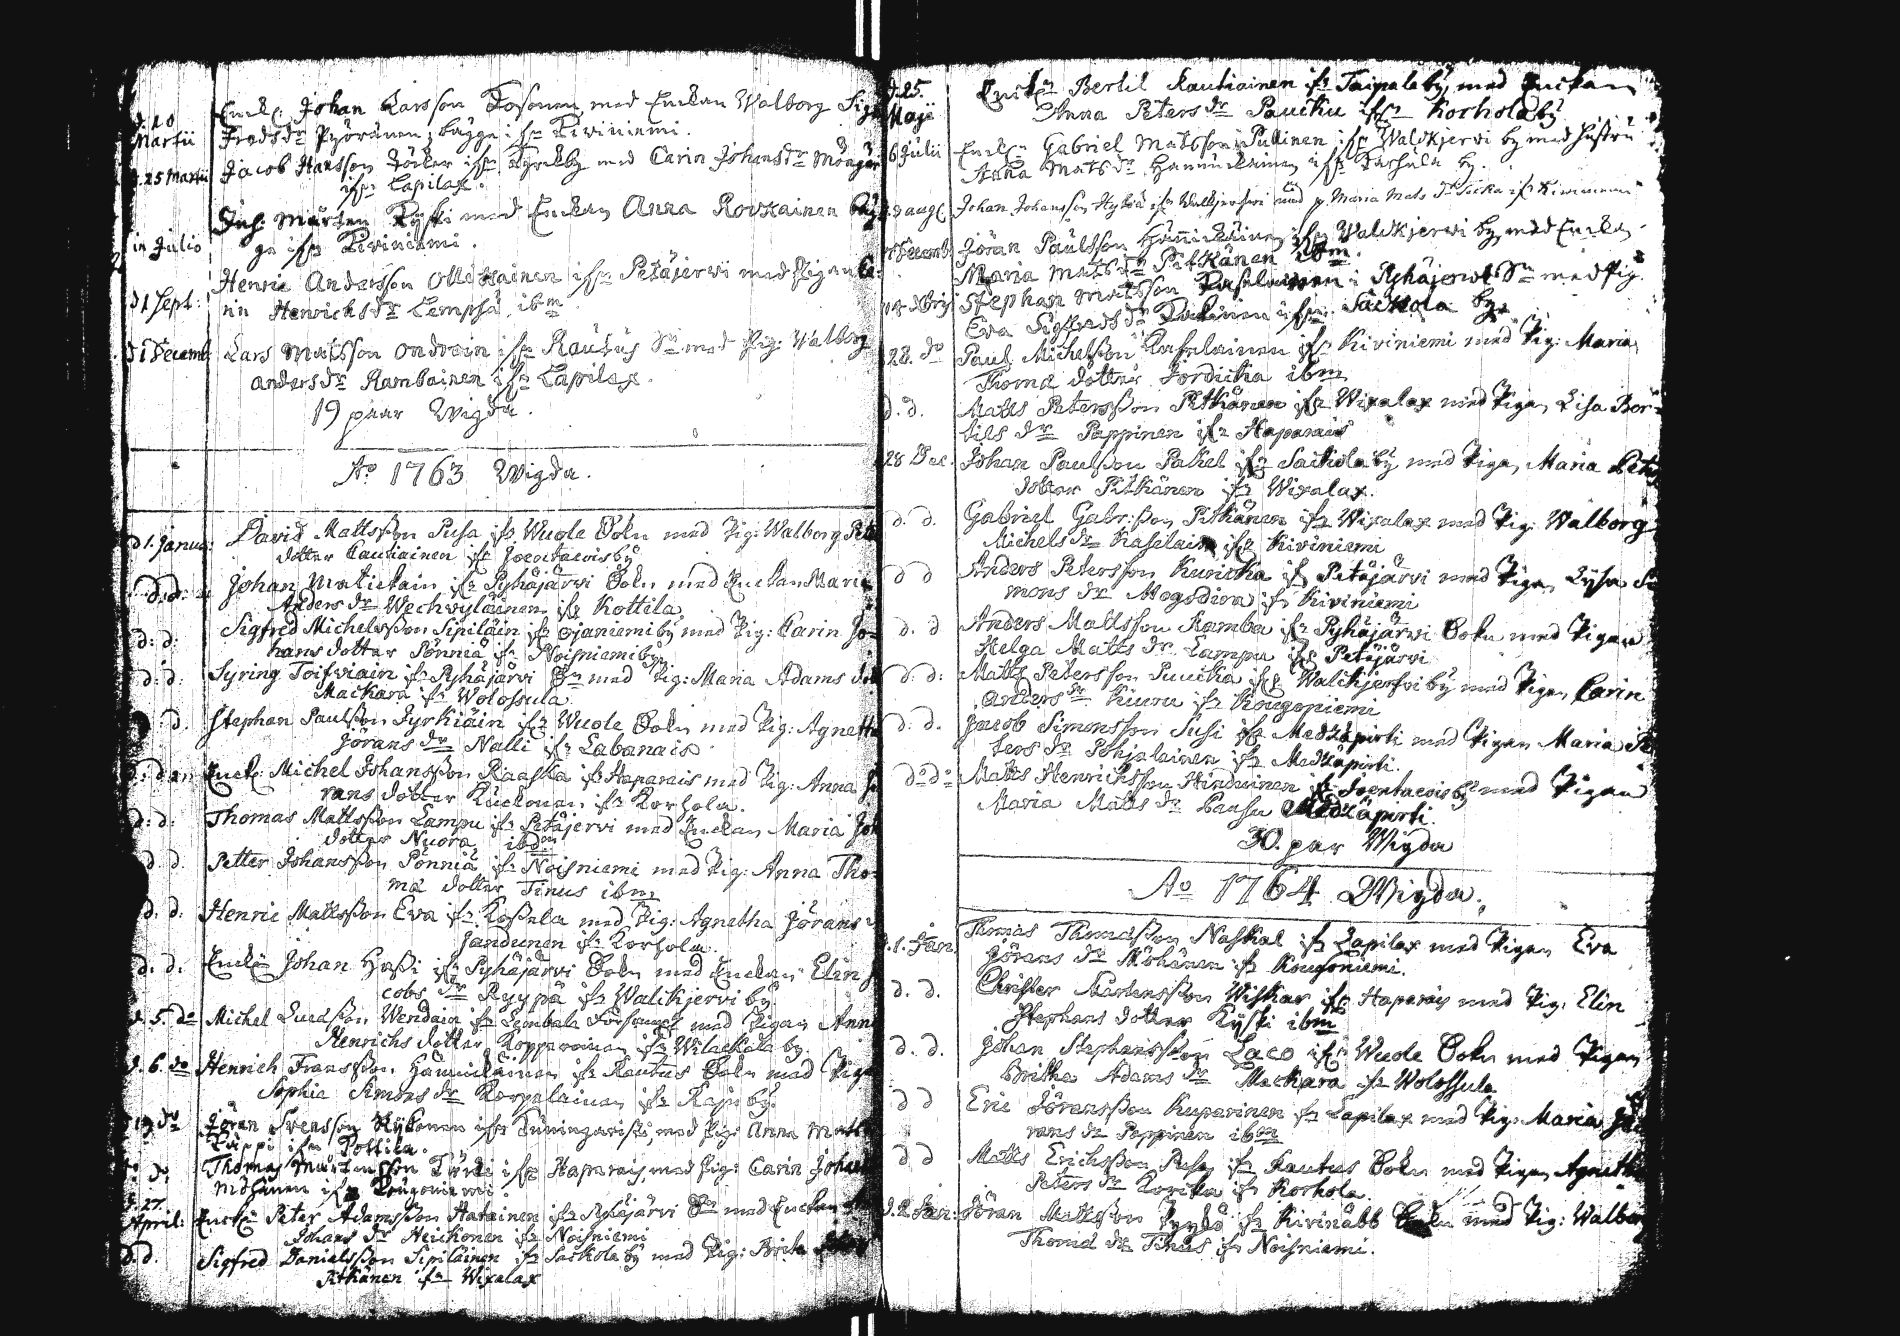 d. 20 Enckl: Johan Larsson Tosonen med Enckan Walborg Sig
Martii Fredsdr Pyöränen, bägge ifr Kiviniemi.
d. 25 Martii Jacob Hansson ifrn med Carin Johansdr
ifrn Lapilax.
Inh: Mårten Kyski med Enckan Anna Rovkainen bäg
in Julio ge ifrn Kiviniemi.
Henric Andersson Ollikainen ifrn Petäjerwi med Pigan Ca-
d 1 Sept: rin Henricksdr Lempfä ibm
d 1 Decemb Lars Matsson Ondroin ifrn Rautus Sn med Pig: Walborg
andersdr Rambainen ifrn Lapilax.
19 paar Wigda.
Ao 1763 Wigda.
d 1. Janua: David Mattsson Pusa ifr Wuole Sokn med Pig: Walborg Pet
dotter Rautiainen ifr Joentacoisby
d: d: Johan Matickain ifr Pyhäjärvi Sokn med Enckan Maria
Anders dr Wechvyläinen ifr Kottila
d: d: Sigfred Michelsson Sipiläin ifr Ojaniemi by med Pig: Carin Jo-
hans dotter Pönniä ifr Noisniemi by
d: d: Syring Toifviain ifr Pyhäjärvi Sn med Pig: Maria Adams dot
Mackara ifr Wolossula
: d. Stephan Paulsson Jyrkiäin ifr Wuole Sokn med Pig: Agneta
Jörans dr Nalli ifr Labanais
d: d: Enckl: Michel Johansson Raaska ifr Haparais med Pig: Anna Jö
rans dotter Kuckonen ifr Korhola.
d: d: Thomas Mattsson Lampu ifr Petäjervi med Enckan Maria Joh
dotter Nuora ibdm
d d. Petter Johansson Pönniä ifr Noisniemi med Pig: Anna Tho-
ma dotter Tinus ibm
d. d. Henric Mattsson Eva ifr Kosela med Pig: Agnetha Jörans
Jandunen ifr Korhola.
d. d. Enckl: Johan Hassi ifr Pyhäjärvi Sokn med Enckan Elin J
cobs dr Ryypä ifr Walikjervi by
d. 5. do Michel Wendain ifr Sombala Församl med Pigan Anna
Henrichs dotter Kopparoinen ifr Wilackala by
d. 6. do Henrich Fransson Hännickäinen ifr Rautus Sokn med Piga
Sophia Simons dr Korpelainen ifr Rapi by.
d 19 do Jöran Svensson Kykonen ifrn med Pig: Anna Matts
Luppi ifrn Pottila.
d: do Thomas Mårtensson ifrn Haparais, med Pig: Carin Johan
Möhönen ifrn Kougoniemi.
d. 27.
April: Enckl: Peter Adamsson Hatainen ifr Pyhäjärvi Sn med Enckan
Johans dr Heickonen ifr Noisniemi
d. d. Sigfred Danielsson Sipiläinen ifr Sackola by med Pig: Brita
Pitkänen ifr Wixalax
d. 25. Enckl: Bertil Rautiainen ifr Taipale by, med Enckan
Maji Anna Petersdr Paucku ifrn Korhola by
6 Julii Enckl: Gabriel Matsson Pullinen ifrn Walckjerwi by med Hustru
Anna Matsdr Hannuckainen ifrn by.
aug. Johan Johansson ifr Walkjerfwi med p. Maria Mats dr ifr Kiviniemi
Decemb Jöran Paulsson Hännickäinen ifrn Walckjerwi by, med Enckan
Maria Matsdr Pitkänen ibm.
Xbris Stephan Matsson Kaselainen i Pyhäjerwi Sn med Pig.
Eva Sigfredsdr ifrn Sackola by.
28. do Paul Michelsson Kaselainen ifr Kiviniemi med Pig: Maria
Thoma dotter Jordicka ibm
d. d. Matts Petersson Pitkänen ifr Wixalax med Pigan Lisa Ber-
tils dr Pappinen ifr Haparais
28 Dec. Johan Paulsson Pakel ifr Sackola by med Pigan Maria Pet
dotter Pitkänen ifr Wixalax.
d. d. Gabriel Gabr:sson Pitkänen ifr Wixalax med Pig: Walborg
Michels dr Kaselain ifr Kiviniemi
d d Anders Petersson Kuricka ifr Petäjärvi med Pigan Lysa Si
mons dr Mogsdiva ifr Kiviniemi
d. d Anders Mattsson Ramba ifr Pyhäjärvi Sokn med Pigan
Helga Matts dr Lampu ifr Petäjärvi
d. d: Matts Petersson Puucka ifr Walckjerfvi by med Pigan Carin
Anders dr Kiuru ifr Kougoniemi
d: d. Jacob Simonsson Susi ifr Medzäpirti med Pigan Maria Pe
ters dr Pohjalainen ifr Medzäpirti.
do do Matts Henrichsson Hinduinen ifr Joentacois by med Pigan
Maria Matts dr Pausu Medzäpirti.
30. par Wigda
Ao 1764 Wigda.
d. 1. Jan. Thomas Thomasson Naskal ifr Lapilax med Pigan Eva
Jörans dr Möhönen ifr Kougoniemi.
d. d. Christer Mårtensson Wiskar ifr Haparais med Pig: Elin
Stephans dotter Kyski ibm
d. d. Johan Stephansson Laco ifr Wuole Sokn med Pigan
Britha Adams dr Mackara ifr Wolossula
d d Eric Jöransson Kuparinen ifr Lapilax med Pig: Maria Jö
rans dr Peppinen ibm
d d Matts Erichsson Pusa ifr Rautus Sokn med Pigan Agneth
Peters dr Korika ifr Korhola.
d. 2. Jan: Jöran Mattsson Pyykö ifr Kivinäbb Sokn med Pig: Walbor
Thoma dr Tinus ifr Noisniemi.